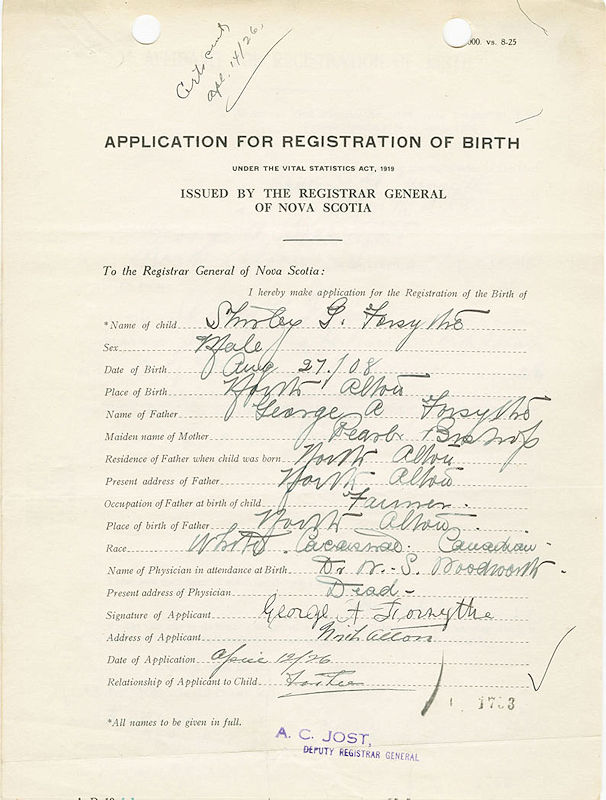 Certs sent
Apl. 14/26.
000. vs. 8-25
APPLICATION FOR REGISTRATION OF BIRTH
UNDER THE VITAL STATISTICS ACT, 1919
ISSUED BY THE REGISTRAR GENERAL
OF NOVA SCOTIA
To the Registrar General of Nova Scotia:
I hereby make application for the Registration of the Birth of
*Name of child Shirley G. Forsythe
Sex Male
Date of Birth Aug 27/08
Place of Birth North Alton
Name of Father George A Forsythe
Maiden name of Mother Pearl Bishop
Residence of Father when child was born North Alton
Present address of Father North Alton
Occupation of Father at birth of child Farmer.
Place of birth of Father North Alton
Race White Canadian
Name of Physician in attendance at Birth Dr W. S. Woodworth
Present address of Physician Dead
Signature of Applicant George A Forsythe
Address of Applicant North Alton
Date of Application April 12/26
Relationship of Applicant to Child Father
1703
*All names to be given in full.
A. C. JOST,
DEPUTY REGISTRAR GENERAL